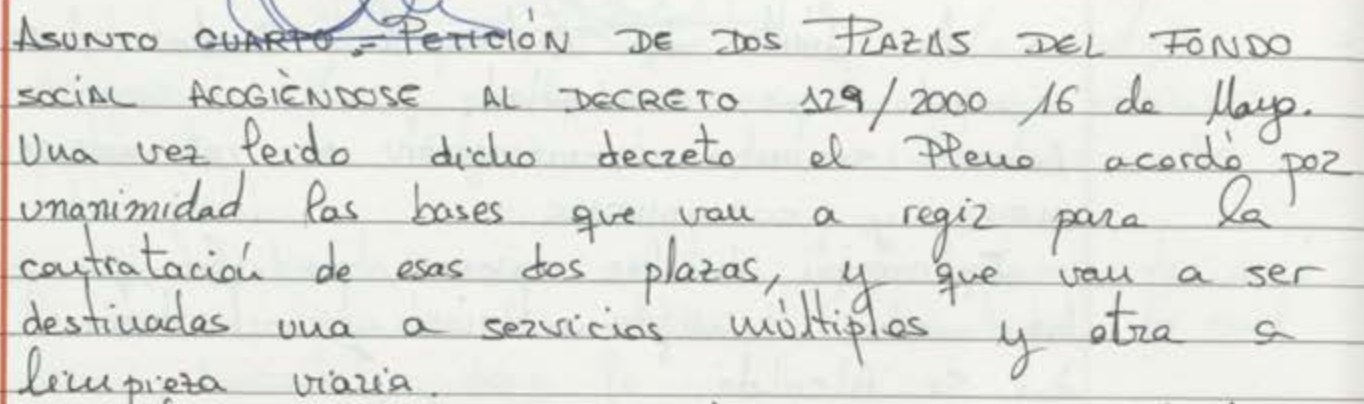 ASUNTO CUARTO.- PETICIÓN DE DOS PLAZAS DEL FONDO
SOCIAL ACOGIÈNDOSE AL DECRETO 129/2000 16 de Mayo.
Una vez leido dicho decreto el Pleno acordó por
unanimidad las bases que van a regir para la
contratación de esas dos plazas, y que van a ser
destinadas una a servicios múltiples y otra a
limpieza viaria.